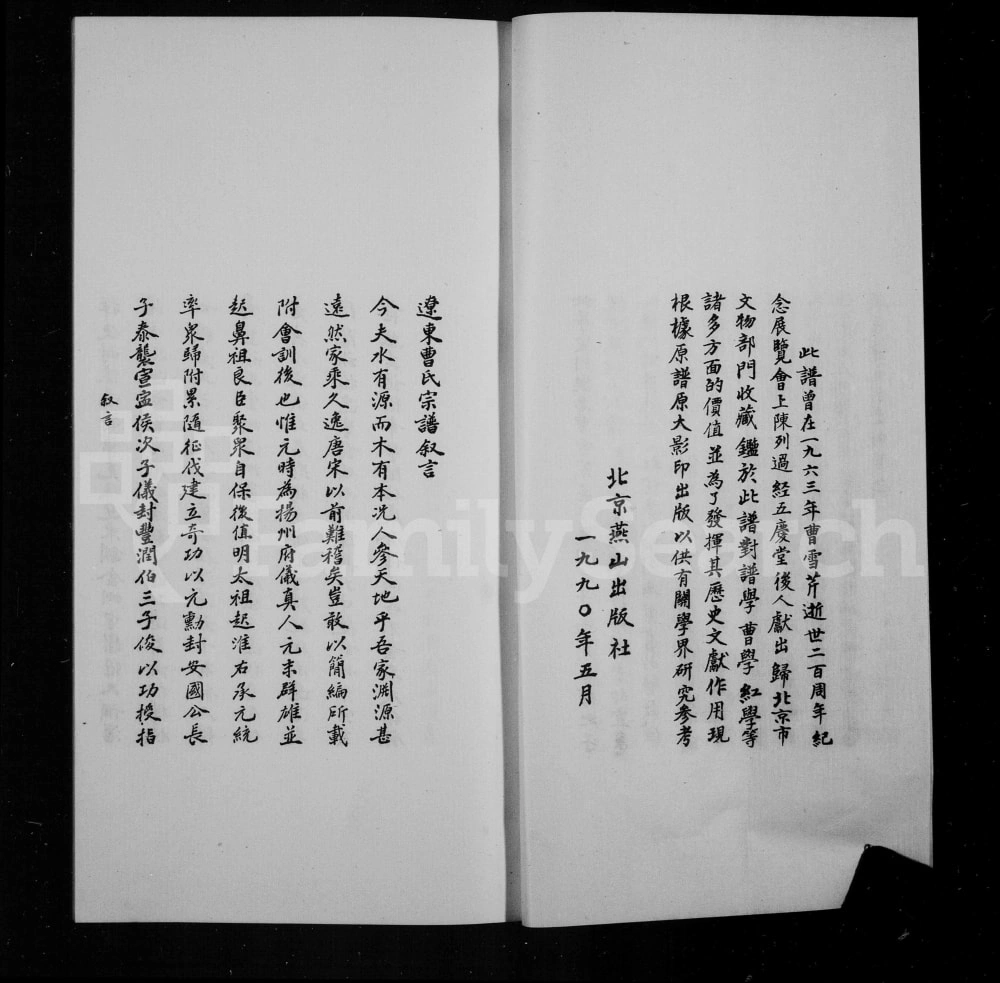 此譜曾在一九六三年曹雪芹逝世二百周年紀
念展覽會上陳列過經五慶堂後人獻出歸北京市
文物部門收藏鑑於此譜對譜學曹學紅學等
諸多方面的價值並為了發揮其歷史文獻作用現
根據原譜原大影印出版以供有關學界研究參考
北京燕山出版社
一九九〇年五月
遼東曹氏宗譜叙言
今夫水有源而木有本况人參天地乎吾家淵源甚
遠然家乘久逸唐宋以前難稽矣豈敢以簡編所載
附會訓後也惟元時為揚州府儀真人元末群雄並
起鼻祖良臣聚眾自保後值明太祖起淮右承元統
率眾歸附累隨征伐建立奇功以元勳封安國公長
子泰襲宣寧侯次子儀封豐潤伯三子俊以功授指
叙言
FamilySearch